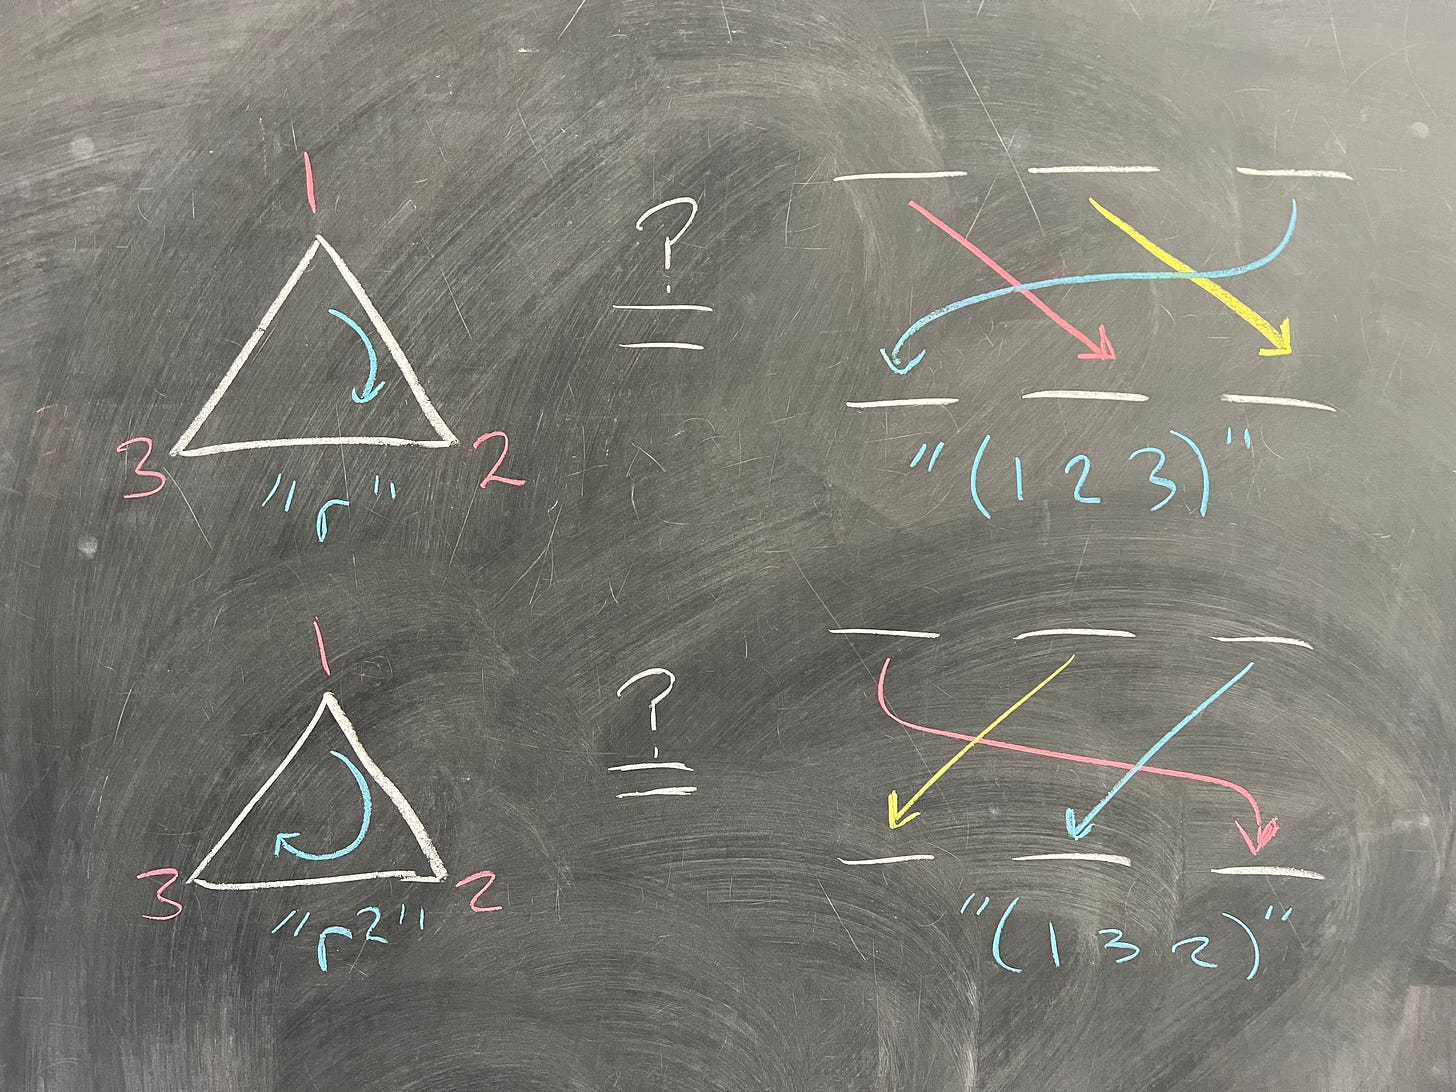 1
?
=
3 2
"r" "(1 2 3)"
1
?
=
3 2
"r2" "(1 3 2)"